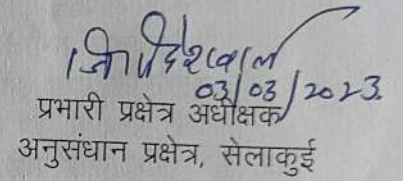 03/03/2023.
प्रभारी प्रक्षेत्र अधीक्षक
अनुसंधान प्रक्षेत्र, सेलाकुई